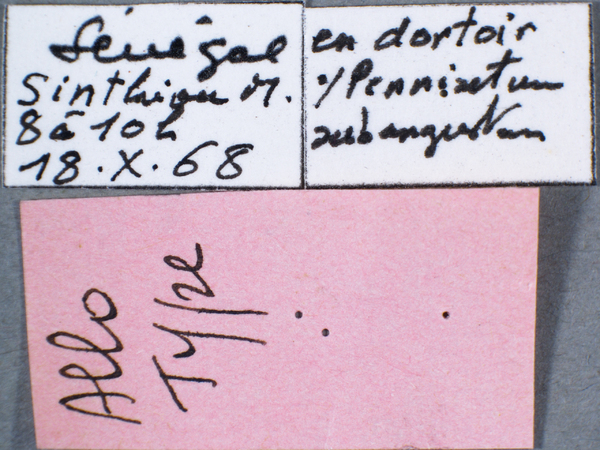 Sénégal
Sinthiou M.
8 à 10h
18.X.68
en dortoir
s/Pennisetum
subangustum
Allo
Type